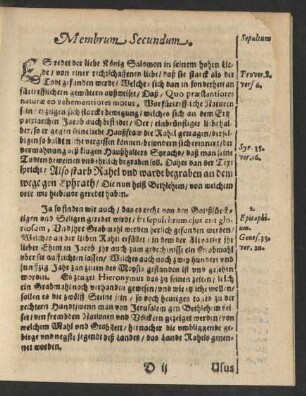 Membrum Secundum.
Sepultura
ES redet der liebe König Salomon in seinem hohen Lie-
de / von einer rechtschaffenen liebe / daß sie starck als der
Todt gefunden werde / Welche sich dan in sonderheit an
fürtrefflichen gemütern außweiset / Daß / Quo præstantiores
naturæ eo vehementiores motus, Wo fürtreffliche Naturen
sein / ereigen sich starcke bewegung / welches sich an dem Ertz
patriarchen Jacob auch befindet / Der / eine brünstige liebe hal-
ber / so er gegen seine liebe Haußfraw die Rahel getragen / der
Todten beweinen und ehrlich begraben soll. Daher dan der Text
spricht: Also starb Rahel und wardt begraben an dem
wege gen Ephrath / Die nun heist Bethlehem / von welchem
orte wir hiebevor geredet haben.
Prover. 8.
vers. 6.
Syr. 38.
ver. 16.
Ja so finden wir auch / das es recht von den Gottsfürch-
tigen und Seligen geredet wird / Et sepulchrum ejus erit glo-
riosum, Und ihre Grabmahl werden herlich gesehen werden /
Welches an der lieben Rahel erfüllet / in dem der Altvater ihr
lieber Ehman Jacob ihr auch zum gedechtniß ein Grabmahl
über sie auffrichten lassen / Welches auch noch zwey hundert und
funfftzig Jahr zun zeiten des Mosis gestanden ist und gesehen
worden. Es zeuget Hieronymus das zu seinen zeiten / solch
ein Grabmahl noch verhanden gewesen / und wie etzliche wol-
len es die zwölff Steine sein / so noch heutiges tages zu der
rechten Handt / wenn man von Jerusalem gen Bethlehem rei-
set / den frembden Nationen und Völckern gezeiget werden / von
welchem Mahl und Grabstett / hernacher die umbliggende ge-
birge und negste jegende deß Landes / das Lande Rahels genen-
net worden.
2.
Epitaphi-
um.
Genes. 35.
ver. 20.
D ij
Usus